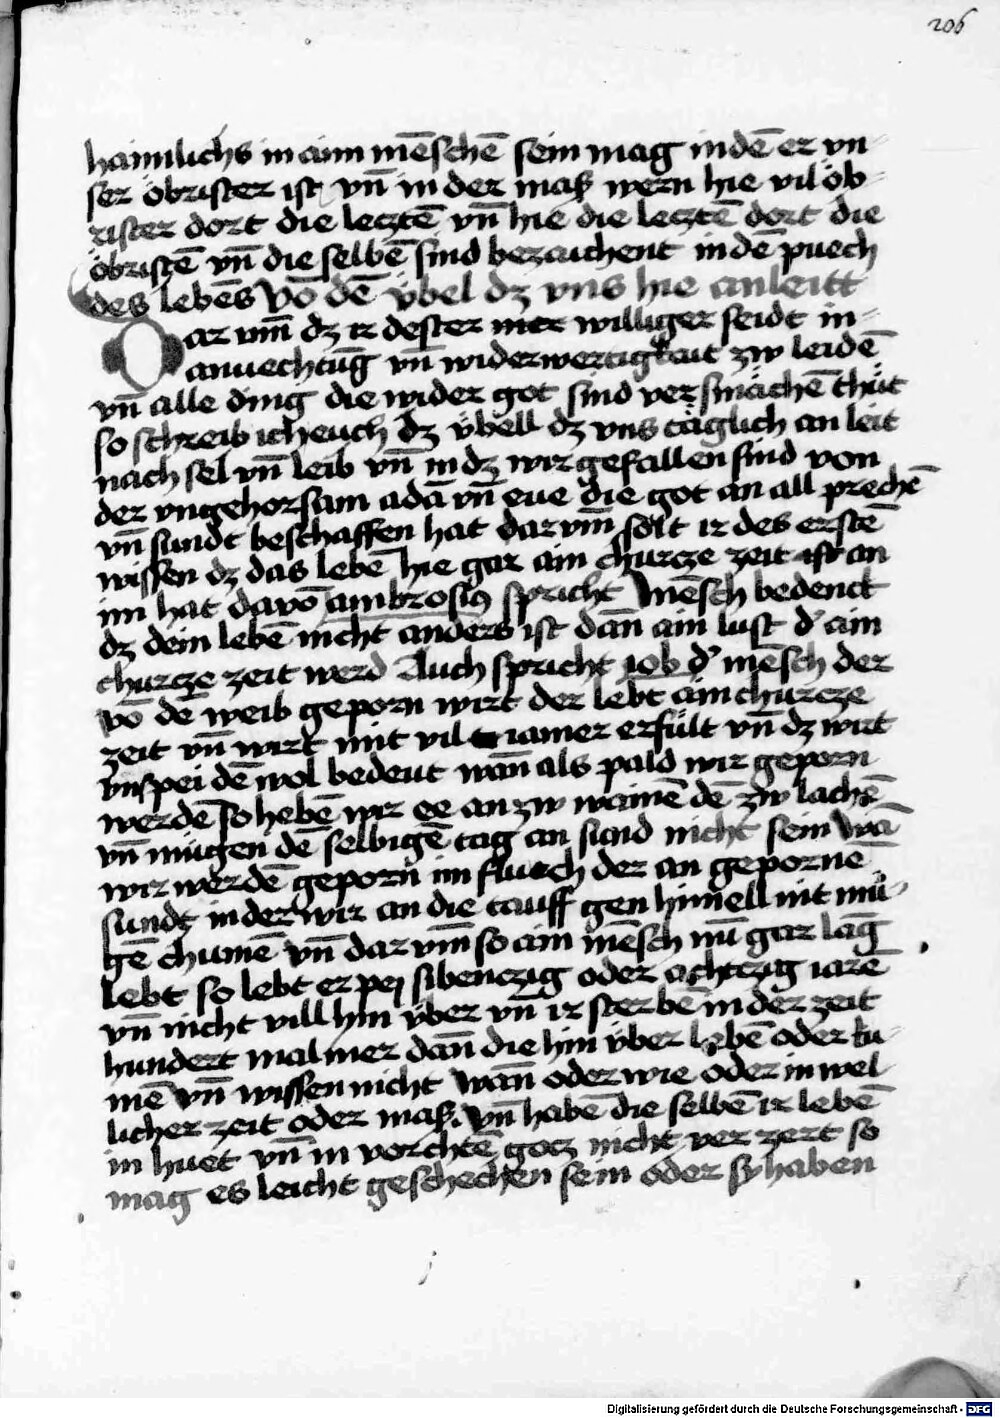 206
haimlichs in aim mēschē sein mag in dē er vn⸗
ser öbrister ist vn̄ in der maß wern hie vil öb⸗
rister dort die lecztē vn̄ hie die leczte dort die
öbristē vn̄ die selbē sind bezaichent in dē puech
des lebēs Vō dē ÿbel dz vns hie anleitt
Dar vm̄ dz ir dester mer williger seidt in⸗
anuechtūg vn̄ widerwertigkait zw leidē
vn̄ alle ding die wider got sind versmächē thüt
so schreib ich euch dz ÿbell dz vns täglich an leit
nach sel vn̄ leib vn̄ in dz wir gefallen sind von
der vngehorsam adā vn̄ eue die got an all prechē
vn̄ sundt beschaffen hat dar vm̄ sölt ir des erstē
wissen dz das lebē hie gar ain churcze zeit ist an
im hat davō ambrosiꝰ spricht Mēsch bedenck
dz dein lebē nicht anders ist dān ain lust d' ain
churcze zeit werd Auch spricht iob d' mēsch der
vō dē weib geporn wirt der lebt ain churcze
zeit vn̄ wirt mit vil iamer erfült vn̄ dz wirt
vns pei dē wol bedeut wān als pald wir geporn
werdē so hebē wir ee an zw wainē dē zw lachē
vn̄ mügen dē selbigē tag an sund nicht sein Wā
wir werdē geporn im fluech der an gepornē
sundt in der wir an die tauff gen himell nit mü⸗
gē chumē vn̄ dar vm̄ so ain mēsch nū gar lāg
lebt so lebt er pej sibenczig oder achtzig iarē
vn̄ nicht vill hin ÿber vn̄ ir sterbē in der zeit
hundert mal mer dān die hin ÿber lebē oder ku⸗
mē vn̄ wissen nicht wān oder wie oder in wel⸗
licher zeit oder maß. vn̄ habē die selbē ir lebē
in huet vn̄ in vorchtē gocz nicht verzert so
mag es leicht geschechen sein oder sy haben
Digitalisierung gefördert durch die Deutsche Forschungsgemeinschaft - DFG